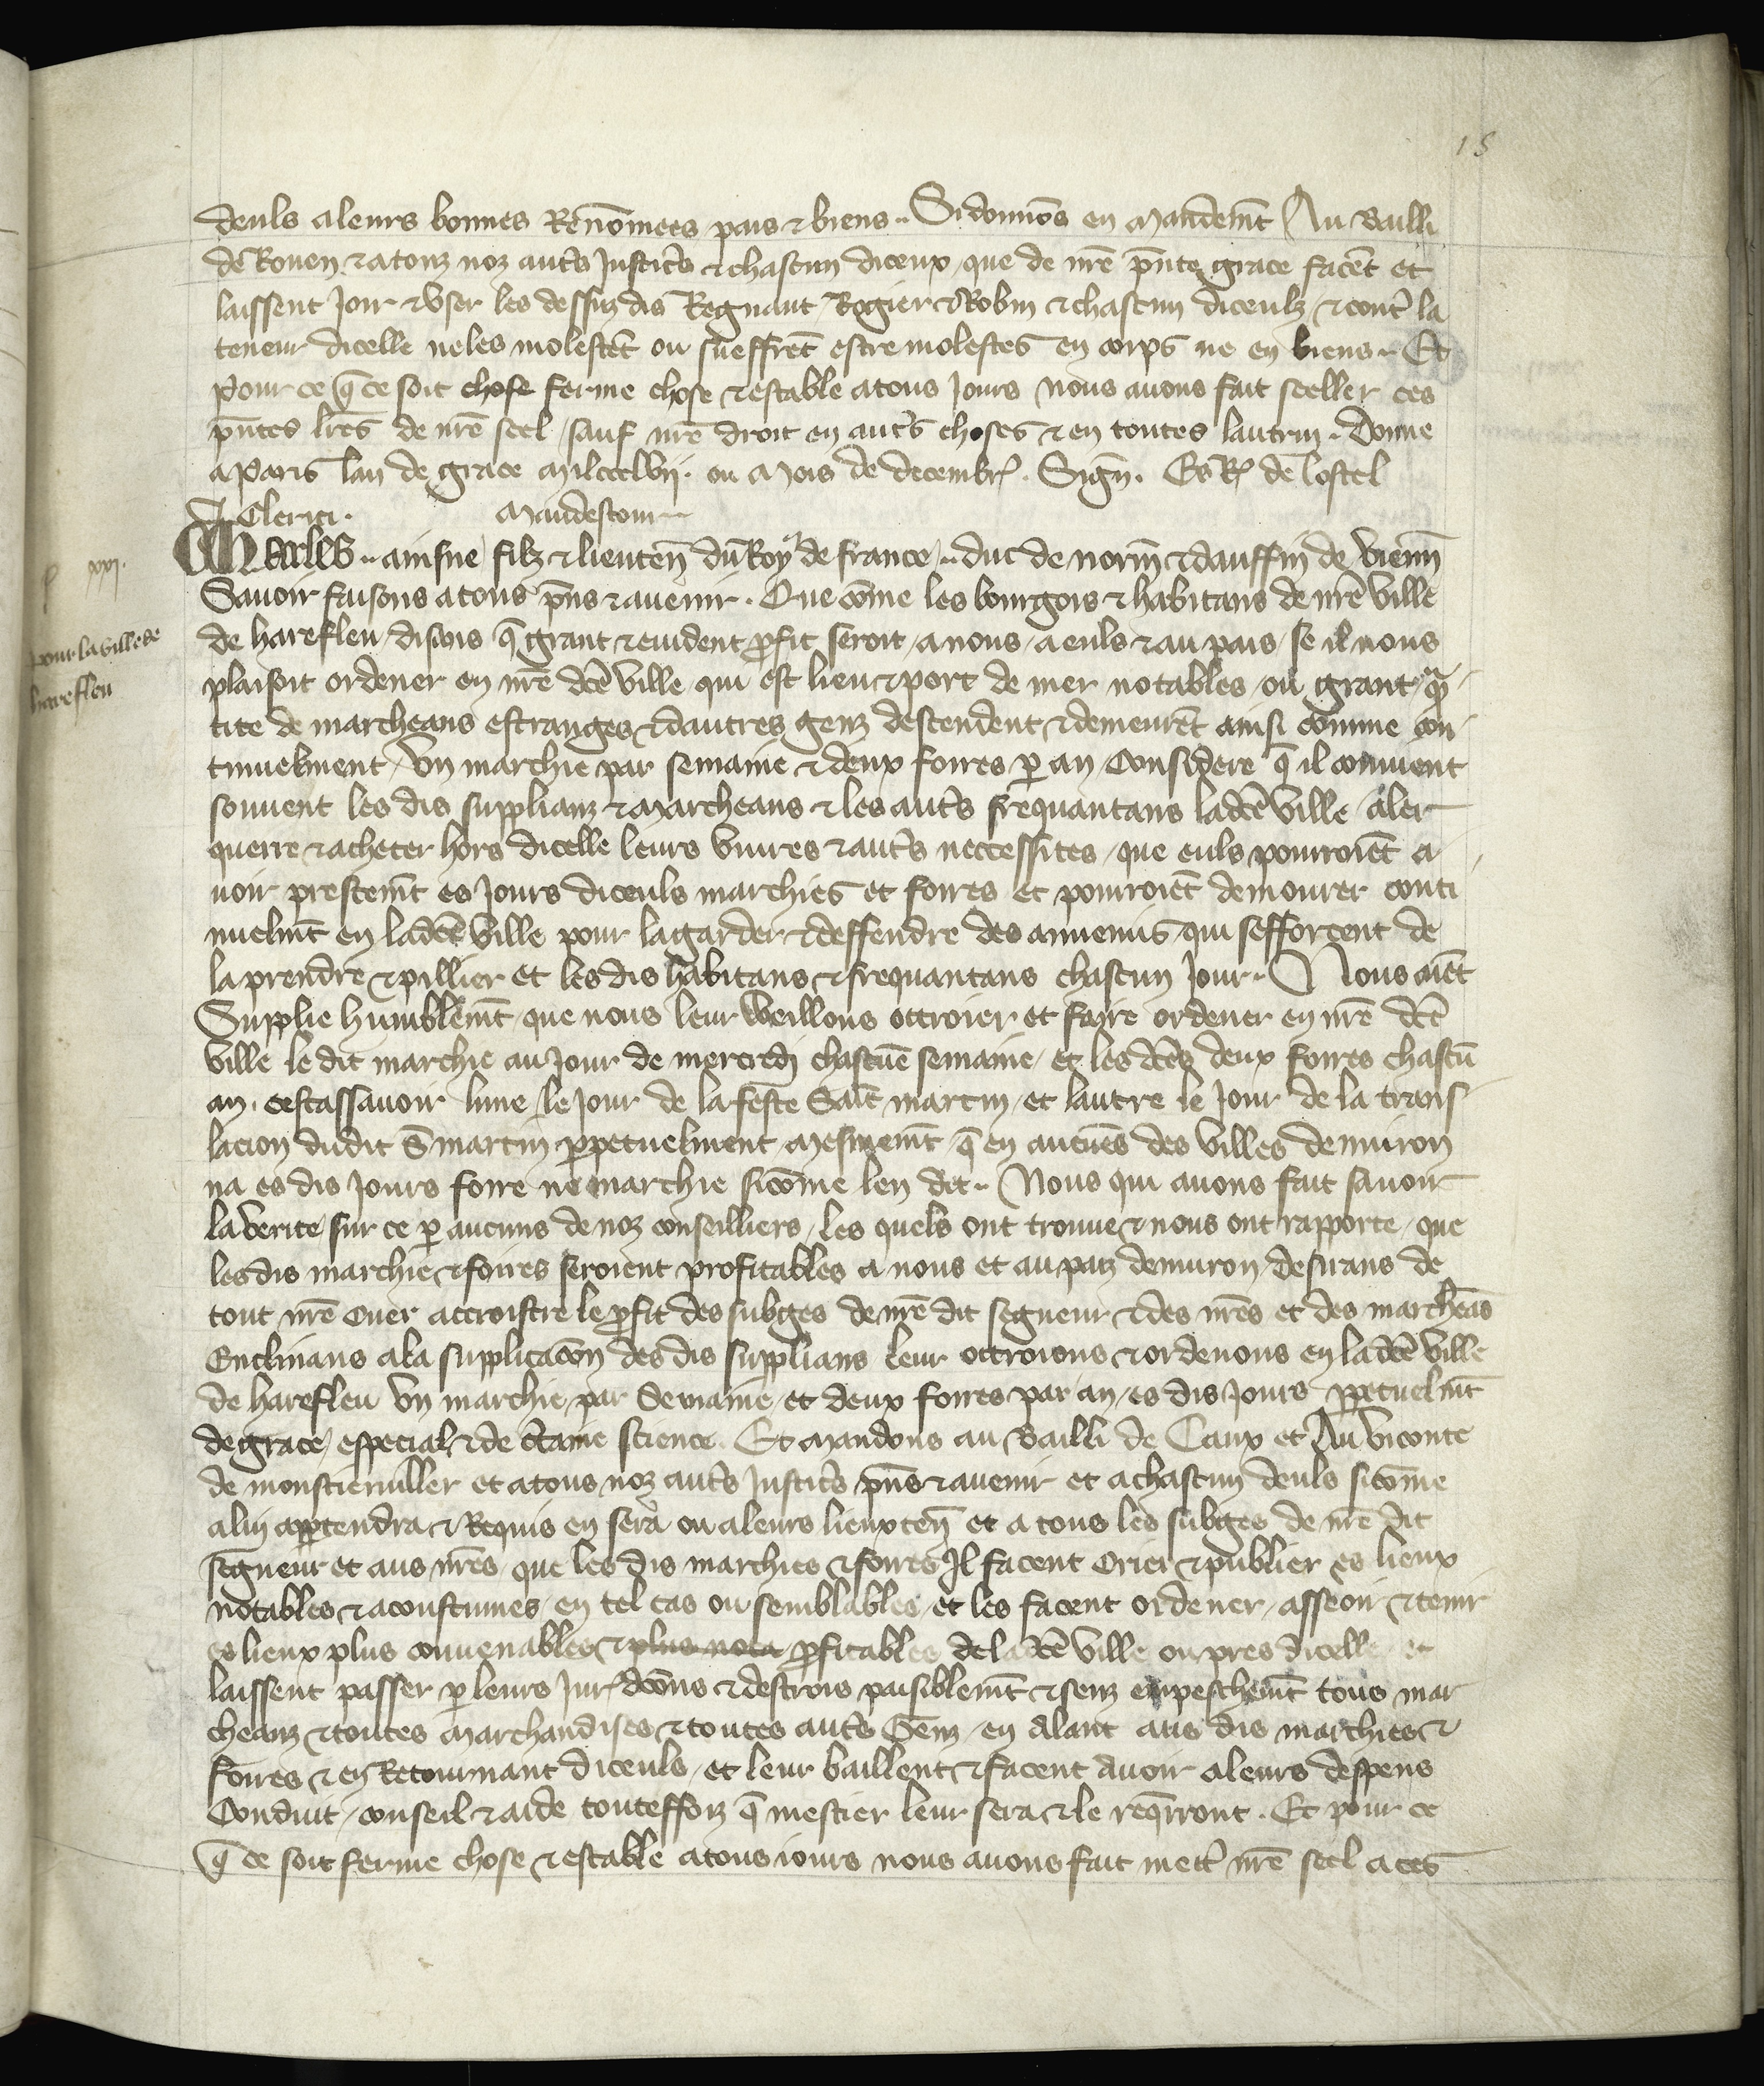 15
deuls a leurs bonnes Renōmees pais & biens .. Si donnōs en mandem̄t Au Bailli
de Rouen & a touz noz aut's Justic's & chascun diceux que de nr̄e p̄nte grace facēt et
laissent Joir & vser les dessuz dis Regnaut Rogier & Robin & chascun diceulz & cont' la
teneur dicelle ne les molestēt ou sueffrēt estre molestes en corps ne en biens .. Et
pour ce q̄ ce soit chose ferme chose & estable a tous Jours nous auons fait seeller ces
p̄ntes lr̄es de nr̄e seel / sauf nr̄e droit en aut's choses & en toutes lautrui . Donne
a Paris lan de grace mil ccc lvij . ou mois de decembr' . Sign̄ . Es R' de lostel
J. Clerici . Mandestour
Charles .. ainsne filz & lieuten̄ du Roy de france .. duc de norm̄ & dauffin de vienn̄
Sauoir faisons a tous p̄ns & auenir . Que cōme les bourgois & habitans de nr̄e ville
xxj.
pour la ville de
harefleu
de harefleu disois q̄ grant & euident p̄fit seroit a nous / a euls & au pais / se il nous
plaisoit ordener en nr̄e dc̄e ville qui est lieu & port de mer notables / ou grant q̄n
tite de marcheans estranges & dautres genz descendent & demeurēt ainsi comme con
tinuelment / Vn marchie par semaine & deux foires p an / Considere q̄ il conuient
souuent les dis supplianz & marcheans & les aut's frequantans la dc̄e ville / aler
querre & acheter hors dicelle leurs viures & aut's neccessites / que euls pourroiēt a
uoir prestem̄t es Jours diceuls marchies et foires et pourroiēt demourer conti
nuelm̄t en la dc̄e ville pour la garder & deffendre des annemis / qui sefforcent de
la prendre & pillier et les dis habitans & frequantans chascun Jour .. Nous aiēt
Supplie humblem̄t que nous leur Veillons ottroier et faire ordener en nr̄e dc̄e
ville le dit marchie au Jour de mercredj chascūe semaine / et les dc̄es deux foires chascū
an . cestassauoir lune / le Jour de la feste Sait martin / et lautre le Jour de la trans
lacion dudit S martin ppetuelment / mesmem̄t q̄ en aucūes des villes denuiron
na es dis Jours foire ne marchie si cōme len dit .. Nous qui auons fait sauoir
la verite sur ce p aucuns de noz conseilliers / les quels ont trouue & nous ont rapporte / que
les dis marchie & foires seroient profitables a nous et au paiz denuiron / desirans de
tout nr̄e cuer accroistre le p̄fit des subges de nr̄e dit segneur & des nr̄es et des marcheās
Enclinans a la supplicacōn des dis supplians leur ottroions & ordenons en la dc̄e ville
de harefleu vn marchie par Semaine / et deux foires par an / es dis Jours ppetuelm̄t
de grace / especial & de c'taine science . Et mandons au Bailli de Caux et Au viconte
de monstieruiller et a tous noz aut's Justic's p̄ns & auenir et a chascun deuls si cōme
a lui apptendra & Requis en sera ou a leurs lieuxten̄ et a tous les subges de nr̄e dit
segneur et aus nr̄es / que les dis marchies & foires Il facent crier & publier es lieux
notables & acoustumes / en tel cas ou semblables / et les facent ordener / asseoir & tenir
es lieux plus conuenables & plus nota p̄fitables de la dc̄e ville ou pres dicelle et
laissent passer p leurs Jur'dcōns & destrois paisiblem̄t & senz empeschem̄t tous mar
cheanz & toutes marchandises & toutes aut's Genz / en alant aus dis marchies &
foires & en Retournant diceuls / et leur baillent & facent auoir a leurs despens
Conduit / conseil & aide touteffoiz q̄ mestier leur sera & le req̄rront . Et pour ce
q̄ ce soit ferme chose & estable a tous iours nous auons fait mett' nr̄e seel a ces